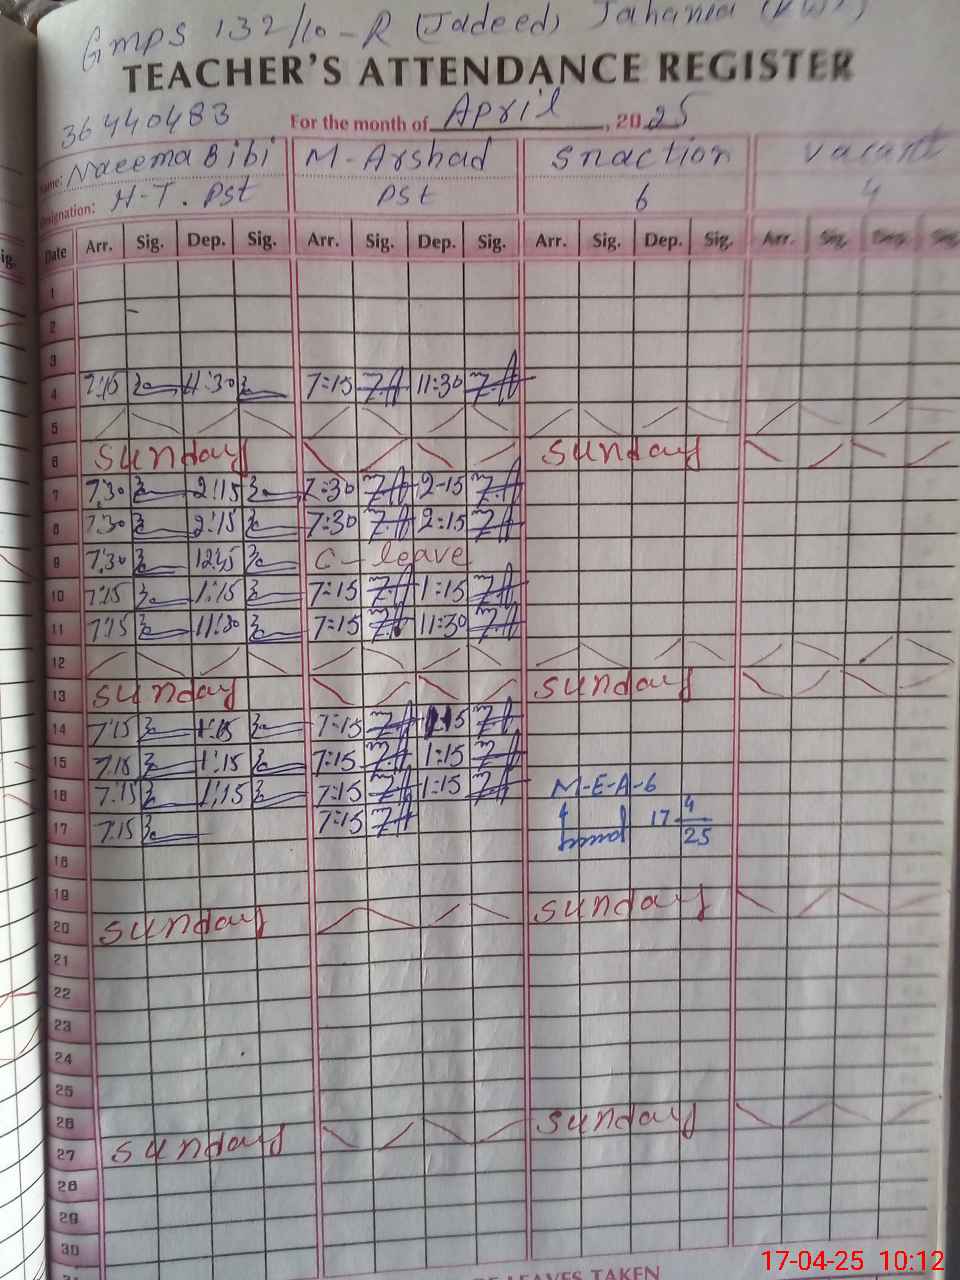 GMPS 132/10-R (Jadeed) Jahania (KWL)
TEACHER'S ATTENDANCE REGISTER
36440483
For the month of April, 2025
Name: Naeema Bibi M-Arshad Snaction vacant
Designation: H-T. PST PST 6 4
Date Arr. Sig. Dep. Sig. Arr. Sig. Dep. Sig. Arr. Sig. Dep. Sig. Arr. Sig. Dep. Sig.
1
2
3
4 7:15 11:30 7:15 11:30
5
6 Sunday Sunday
7 7:30 2:15 7:30 2-15
8 7:30 2:15 7:30 2:15
9 7:30 12:45 C-leave
10 7:15 1:15 7:15 1:15
11 7:15 11:30 7:15 11:30
12
13 Sunday Sunday
14 7:15 1:15 7:15 1:15
15 7:15 1:15 7:15 1:15
16 7:15 1:15 7:15 1:15 M-E-A-6
17 7:15 7:15 17 4/25
18
19
20 Sunday Sunday
21
22
23
24
25
26
27 Sunday Sunday
28
29
30
LEAVES TAKEN
17-04-25 10:12